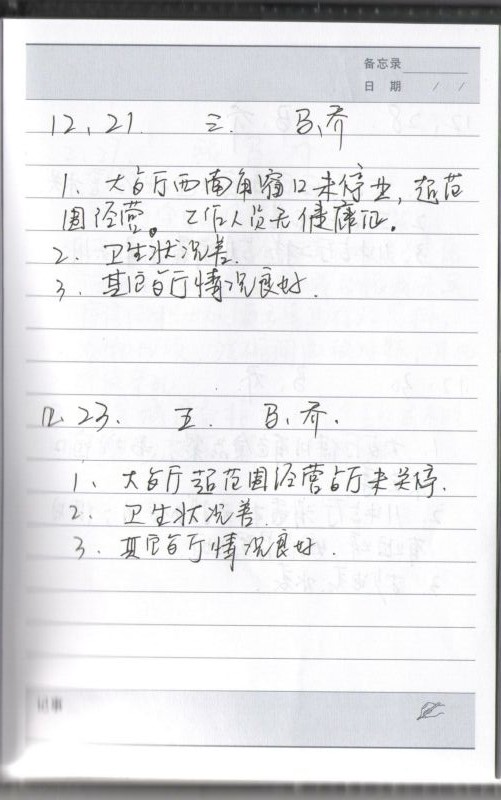 备忘录
日 期 / /
12、21. 三. 马、乔
1、大餐厅西南角窗口未停业,超范
围经营。工作人员无健康证。
2、卫生状况善.
3、其它餐厅情况良好.
12、23. 五. 马、乔.
1、大餐厅超范围经营餐厅未关停.
2、卫生状况善.
3、其它餐厅情况良好.
记事